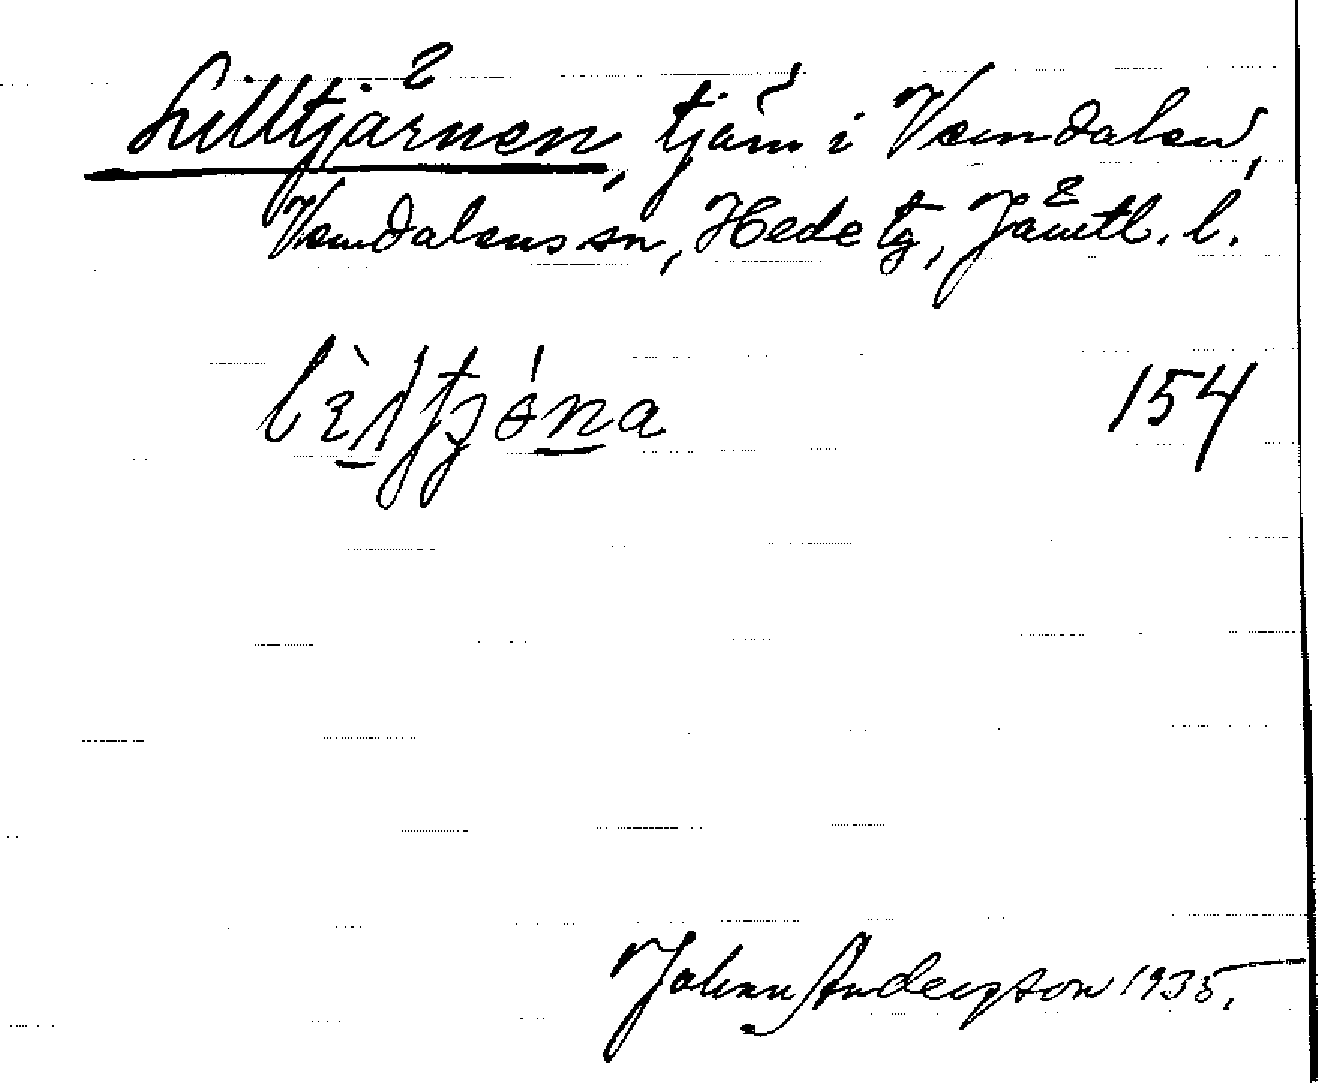 Lilltjärnen, tjärn i Vemdalen,
Vemdalens sn, Hede tg, Jämtl. l.
154
Johan Anderson 1935.